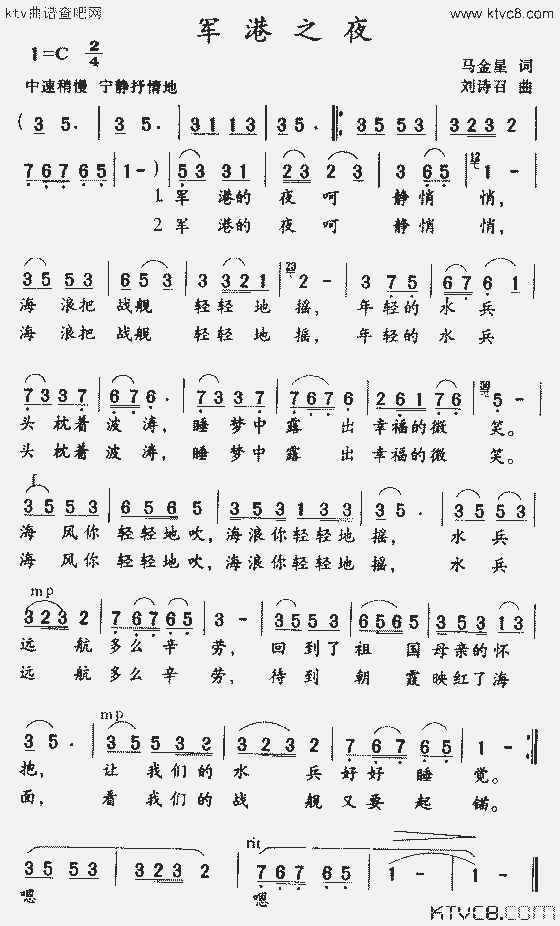 ktv曲谱查吧网 www.ktvc8.com
军港之夜
1=C 2/4
马金星 词
中速稍慢 宁静抒情地 刘诗召 曲
( 3 5. | 3 5. | 3 1 1 3 | 3 5. ‖: 3 5 5 3 | 3 2 3 2 |
7 6 7 6 5 | 1 - ) | 5 3 3 1 | 2 3 2 3 | 3 6 5 | 1 - |
1 军 港的 夜 呵 静 悄 悄,
2 军 港的 夜 呵 静 悄 悄,
3 5 5 3 | 6 5 3 | 3 3 2 1 | 2 - | 3 7 5 | 6 7 6 1 |
海 浪把 战舰 轻轻 地 摇, 年轻的 水 兵
海 浪把 战舰 轻轻 地 摇, 年轻的 水 兵
7 3 3 7 | 6 7 6. | 7 3 3 7 | 7 6 7 7 6 | 2 6 1 7 6 | 5 - |
头 枕着 波 涛, 睡 梦中 露 出 幸福的微 笑。
头 枕着 波 涛, 睡 梦中 露 出 幸福的微 笑。
f
3 5 5 3 | 6 5 6 5 | 3 5 3 1 3 3 | 3 5. | 3 5 5 3 |
海 风你 轻轻地吹, 海浪你轻轻地 摇, 水 兵
海 风你 轻轻地吹, 海浪你轻轻地 摇, 水 兵
mp
3 2 3 2 | 7 6 7 6 5 | 3 - | 3 5 5 3 | 6 5 6 5 | 3 5 3 1 3 |
远 航 多么 辛 劳, 回 到了 祖 国 母亲的怀
远 航 多么 辛 劳, 待 到 朝 霞 映红了海
mp
3 5. | 3 5 5 3 2 | 3 2 3 2 | 7 6 7 6 5 | 1 - :‖
抱, 让 我们的 水 兵 好好 睡 觉。
面, 看 我们的 战 舰 又要 起 锚。
rit
3 5 5 3 | 3 2 3 2 | 7 6 7 6 5 | 1 - | 1 - ‖
嗯 嗯
KTVC8.com